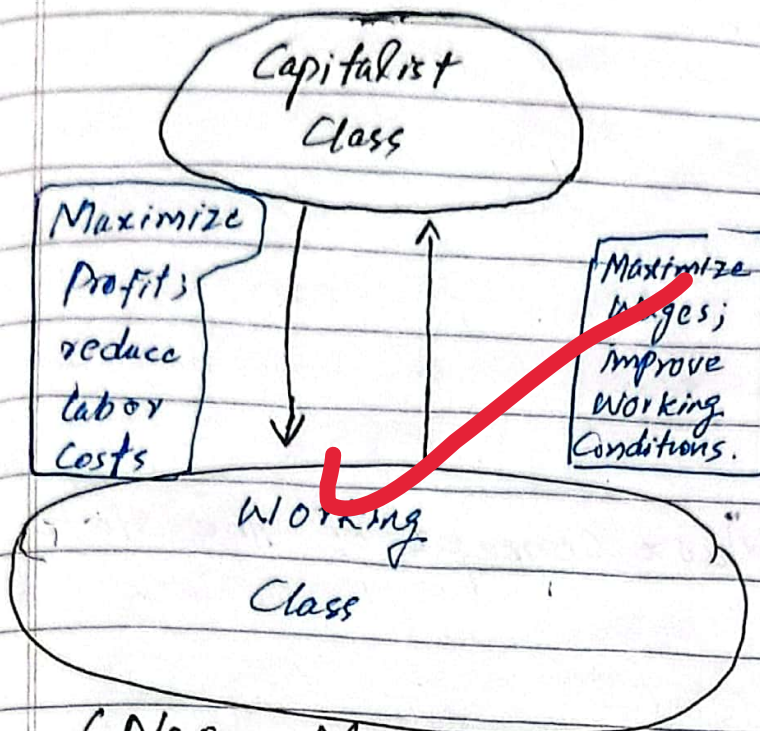 Capitalist
Class
Maximize
Profits
reduce
labor
costs
Maximize
wages;
improve
working
Conditions.
Working
Class